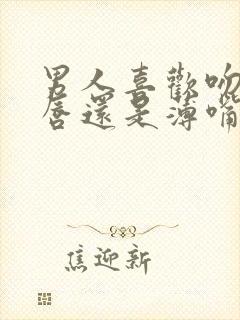 男人喜歡吻
唇還是薄嘴
焦迎新